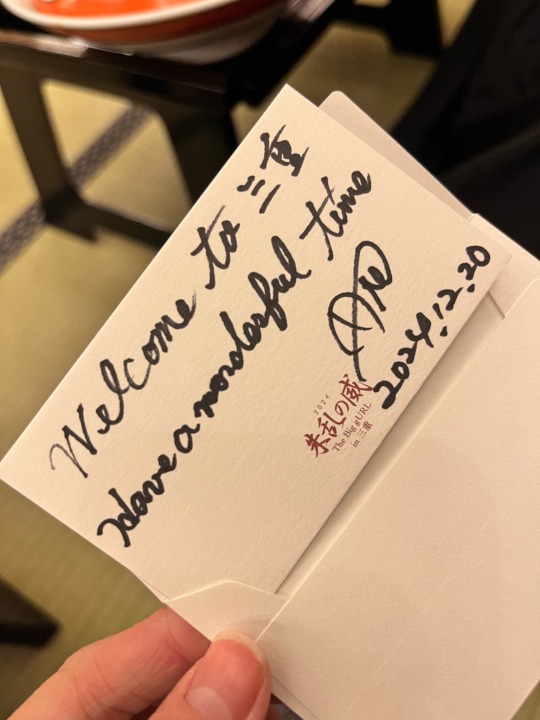 Welcome to 三重
Have a wonderful time
2024.12.20
2024
朱乱の威
The Big gURL
in 三重